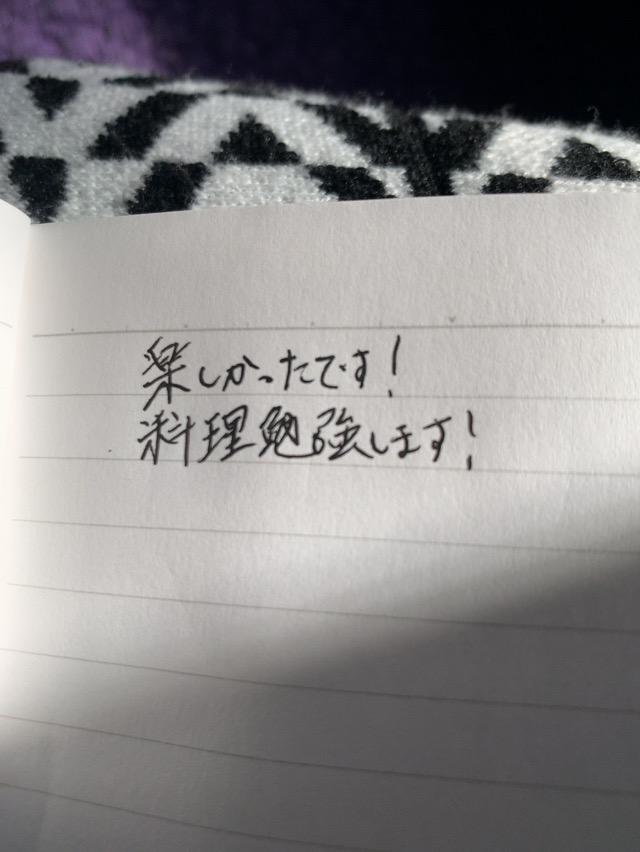 楽しかったです!
料理勉強します!